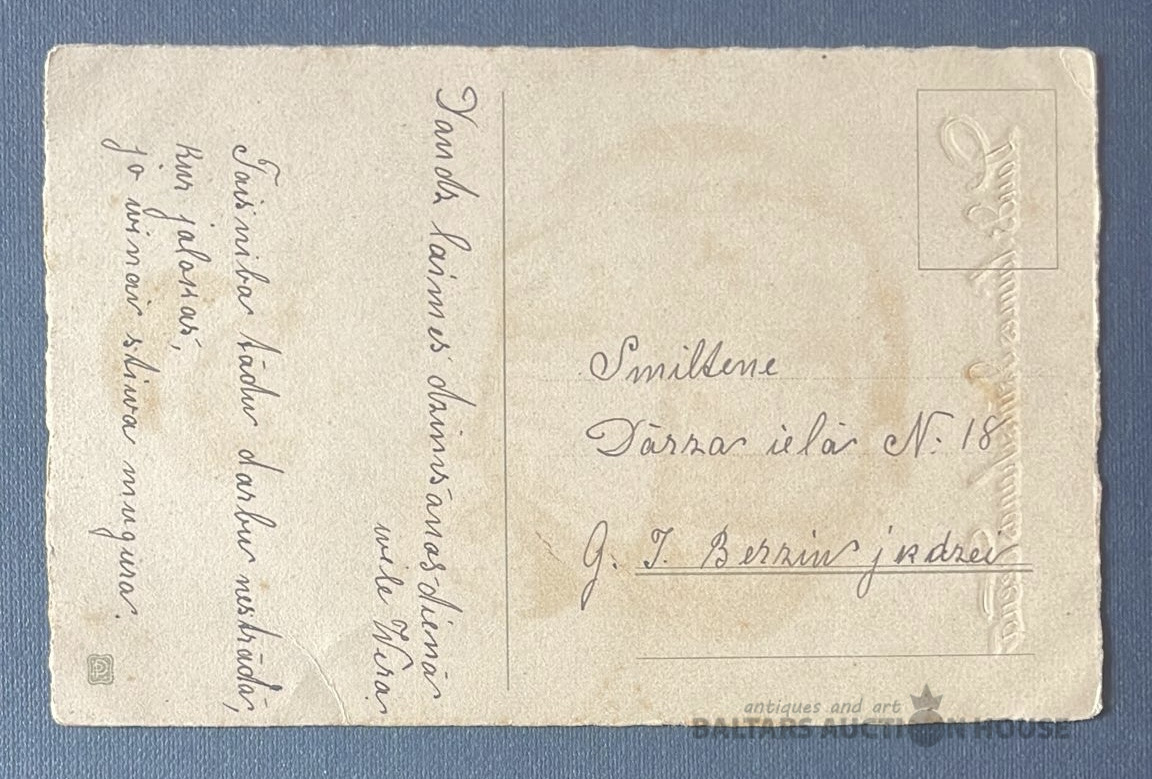 Daudz laimes dzimšanas dienā
wēlē Wera.
Taisniba tādu darbu nestrādā,
kur jalokas,
jo winai stiwa mugura.
Smiltene
Dārza ielā N: 18
G. J. Berzin jkdzei
antiques and art
BALTARS AUCTION HOUSE